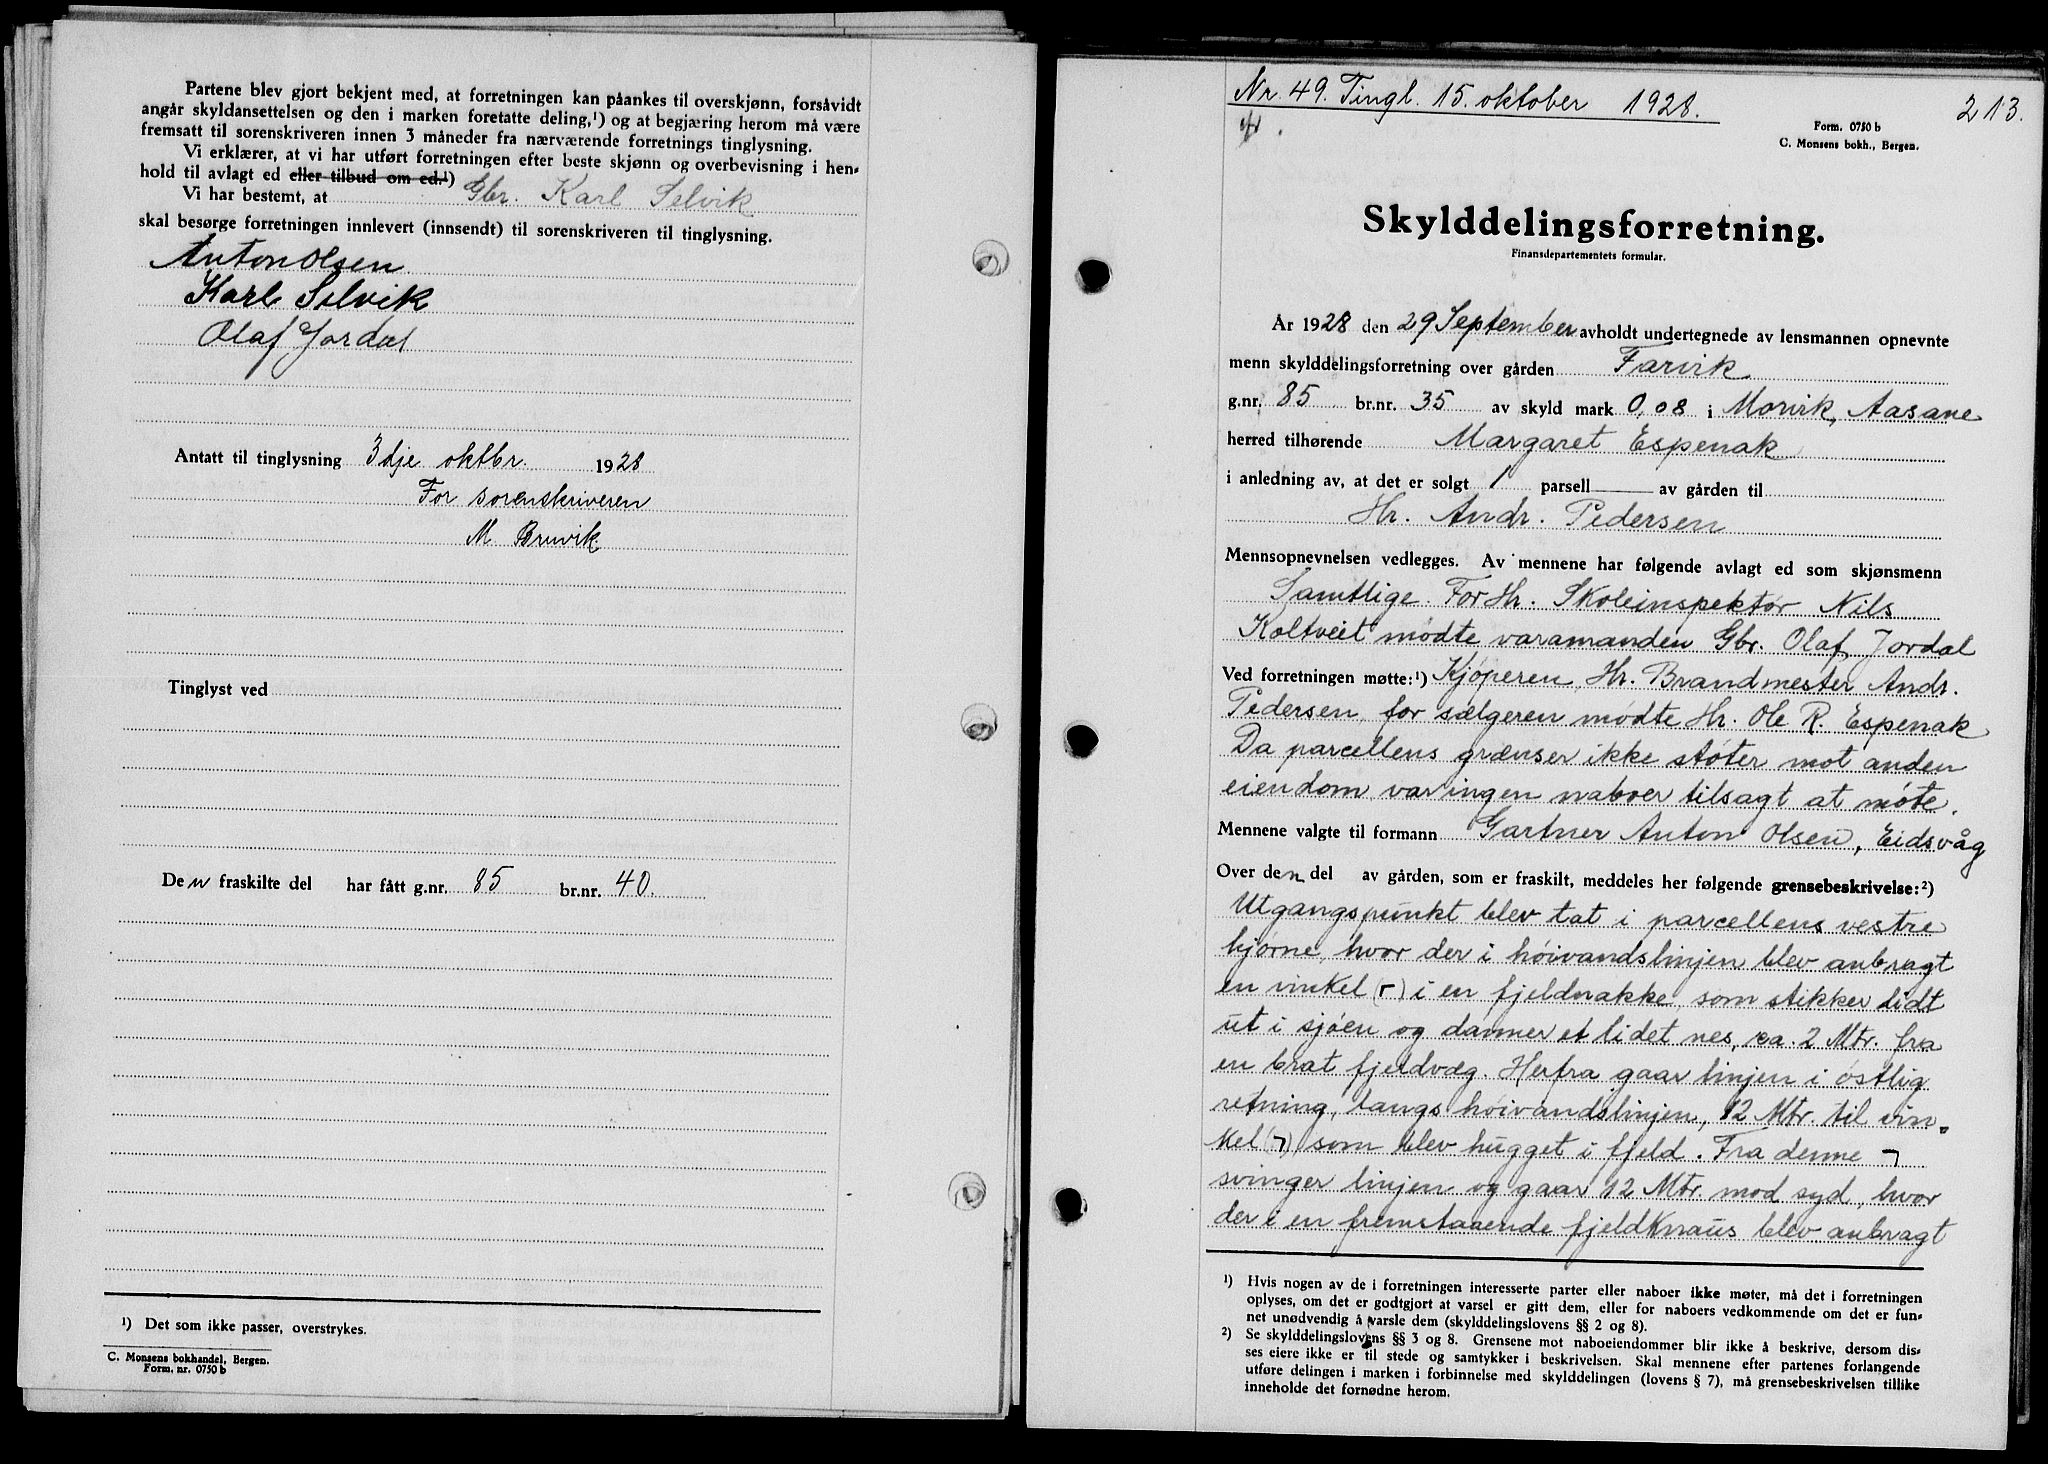 Partene blev gjort bekjent med, at forretningen kan påankes til overskjønn, forsåvidt
angår skyldansettelsen og den i marken foretatte deling,¹) og at begjæring herom må være
fremsatt til sorenskriveren innen 3 måneder fra nærværende forretnings tinglysning.
Vi erklærer, at vi har utført forretningen efter beste skjønn og overbevisning i hen-
hold til avlagt ed eller tilbud om ed.¹)
Vi har bestemt, at Gbr. Karl Selvik
skal besørge forretningen innlevert (innsendt) til sorenskriveren til tinglysning.
Anton Olsen
Karl Selvik
Olaf Jordal
Antatt til tinglysning 3dje oktbr. 1928
For sorenskriveren
M Bruvik
Tinglyst ved
Den fraskilte del har fått g.nr. 85 br.nr. 40.
¹) Det som ikke passer, overstrykes.
C. Monsens bokhandel, Bergen.
Form. nr. 0750 b
Nr. 49. Tingl. 15. oktober 1928.
213.
Form. 0750 b
C. Monsens bokh., Bergen.
Skylddelingsforretning.
Finansdepartementets formular.
År 1928 den 29 September avholdt undertegnede av lensmannen opnevnte
menn skylddelingsforretning over gården Farvik
g.nr. 85 br.nr. 35 av skyld mark 0,08 i Morvik, Aasane
herred tilhørende Margaret Espenak
i anledning av, at det er solgt 1 parsell av gården til
Hr. Andr. Pedersen
Mennsopnevnelsen vedlegges. Av mennene har følgende avlagt ed som skjønsmenn
Samtlige. For Hr. Skoleinspektør Nils
Koltveit mødte varamanden Gbr. Olaf Jordal
Ved forretningen møtte:¹) Kjøperen, Hr. Brandmester Andr.
Pedersen, for sælgeren mødte Hr. Ole R. Espenak
Da parcellens grænser ikke støter mot anden
eiendom, var ingen naboer tilsagt at møte.
Mennene valgte til formann Gartner Anton Olsen, Eidsvåg
Over den del av gården, som er fraskilt, meddeles her følgende grensebeskrivelse:²)
Utgangspunkt blev tat i parcellens vestre
hjørne, hvor der i høivandslinjen blev anbragt
en vinkel (⌐) i en fjeldnakke, som stikker lidt
ut i sjøen og danner et lidet nes, ca. 2 Mtr. fra
en brat fjeldvæg. Herfra gaar linjen i østlig
retning, langs høivandslinjen, 12 Mtr. til vin-
kel (¬) som blev hugget i fjeld. Fra denne ¬
svinger linjen og gaar 12 Mtr. mod syd, hvor
der i en fremstaaende fjeldknaus blev anbragt
¹) Hvis nogen av de i forretningen interesserte parter eller naboer ikke møter, må det i forretningen
oplyses, om det er godtgjort at varsel er gitt dem, eller for naboers vedkommende om det er fun-
net unødvendig å varsle dem (skylddelingslovens §§ 2 og 8).
²) Se skylddelingslovens §§ 3 og 8. Grensene mot naboeiendommer blir ikke å beskrive, dersom dis-
ses eiere ikke er til stede og samtykker i beskrivelsen. Skal mennene efter partenes forlangende
utføre delingen i marken i forbinnelse med skylddelingen (lovens § 7), må grensebeskrivelsen tillike
inneholde det fornødne herom.